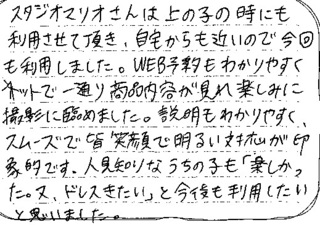 スタジオマリオさんは上の子の時にも
利用させて頂き、自宅からも近いので今回
も利用しました。WEB予約もわかりやすく
ネットで一通り商品内容が見れ楽しみに
撮影に臨めました。説明もわかりやすく、
スムーズで皆笑顔で明るい対応が印
象的です。人見知りなうちの子も「楽しかっ
た。又、ドレスきたい」と今後も利用したい
と思いました。